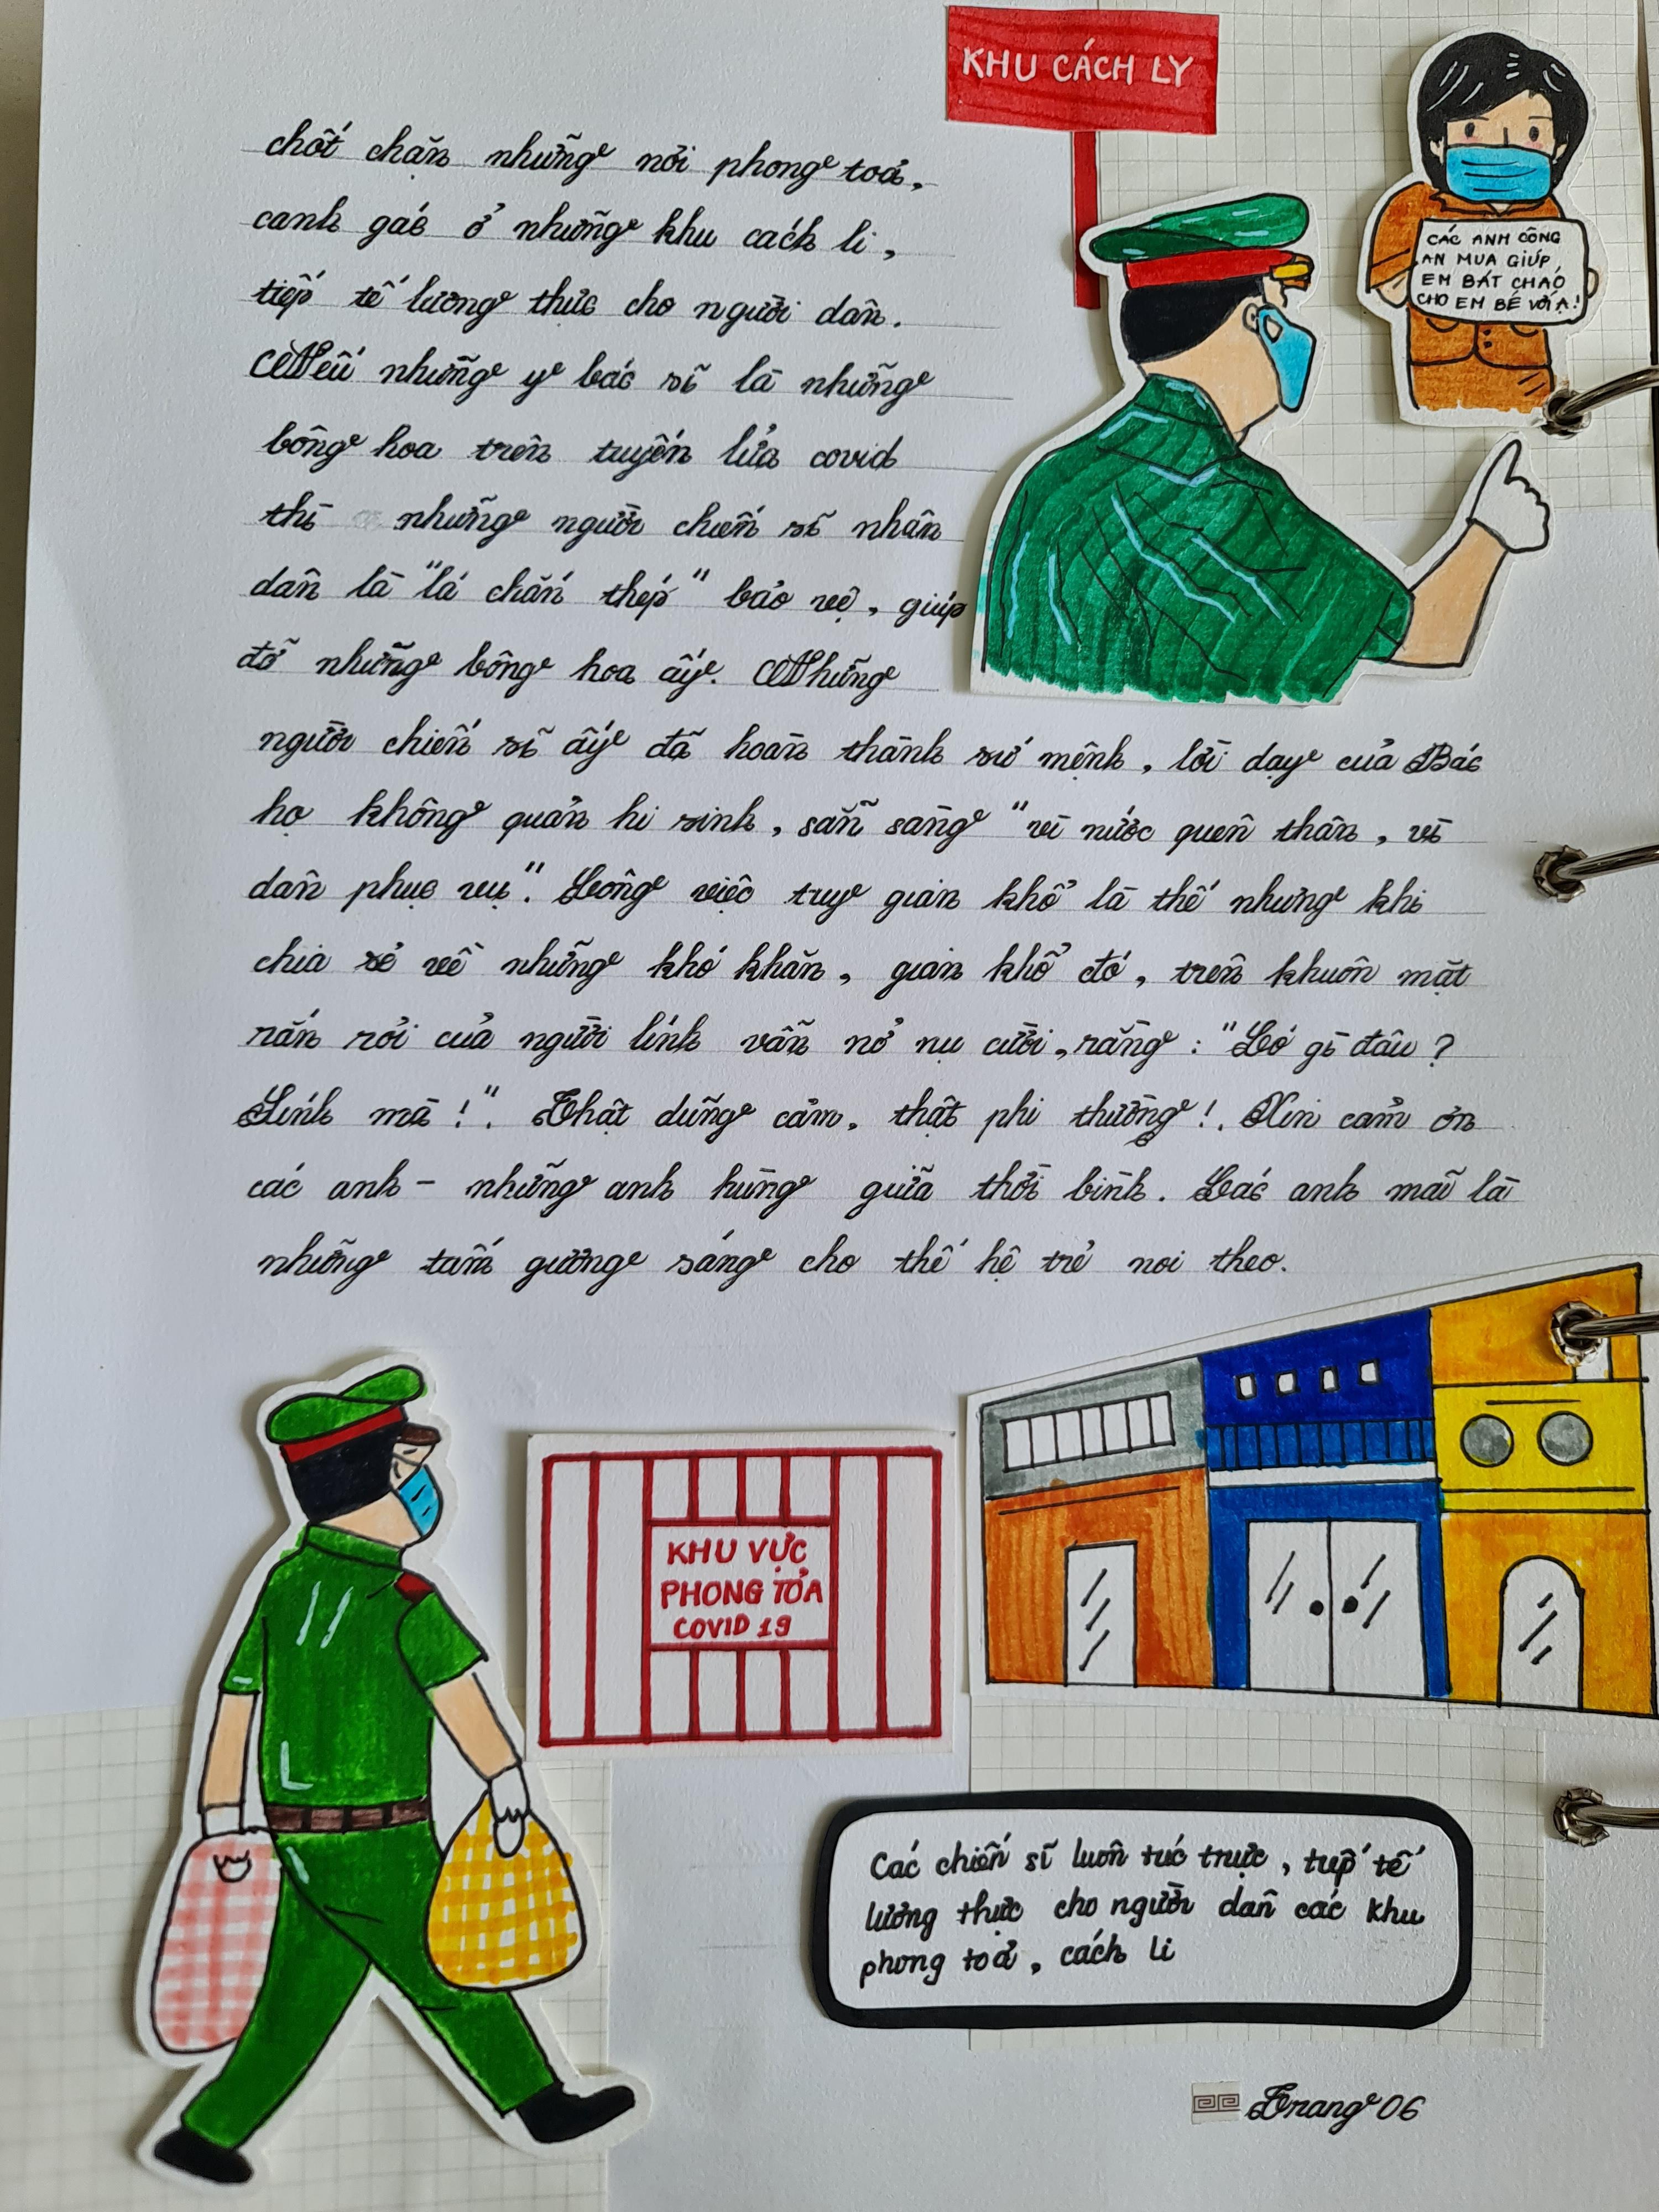 KHU CÁCH LY
CÁC ANH CÔNG
AN MUA GIÚP
EM BÁT CHÁO
CHO EM BÉ VỚI Ạ!
chốt chặn những nơi phong toả,
canh gác ở những khu cách li,
tiếp tế lương thực cho người dân.
Nếu những y bác sĩ là những
bông hoa trên tuyến lửa covid
thì những người chiến sĩ nhân
dân là "lá chắn thép" bảo vệ, giúp
đỡ những bông hoa ấy. Những
người chiến sĩ ấy đã hoàn thành sứ mệnh, lời dạy của Bác
họ không quản hi sinh, sẵn sàng "vì nước quên thân, vì
dân phục vụ". Công việc tuy gian khổ là thế nhưng khi
chia sẻ về những khó khăn, gian khổ đó, trên khuôn mặt
rắn rỏi của người lính vẫn nở nụ cười, rằng: "Có gì đâu?
Lính mà!". Thật dũng cảm, thật phi thường!. Xin cảm ơn
các anh - những anh hùng giữa thời bình. Các anh mãi là
những tấm gương sáng cho thế hệ trẻ noi theo.
KHU VỰC
PHONG TỎA
COVID 19
Các chiến sĩ luôn túc trực, tiếp tế
lương thực cho người dân các khu
phong toả, cách li
Trang 06